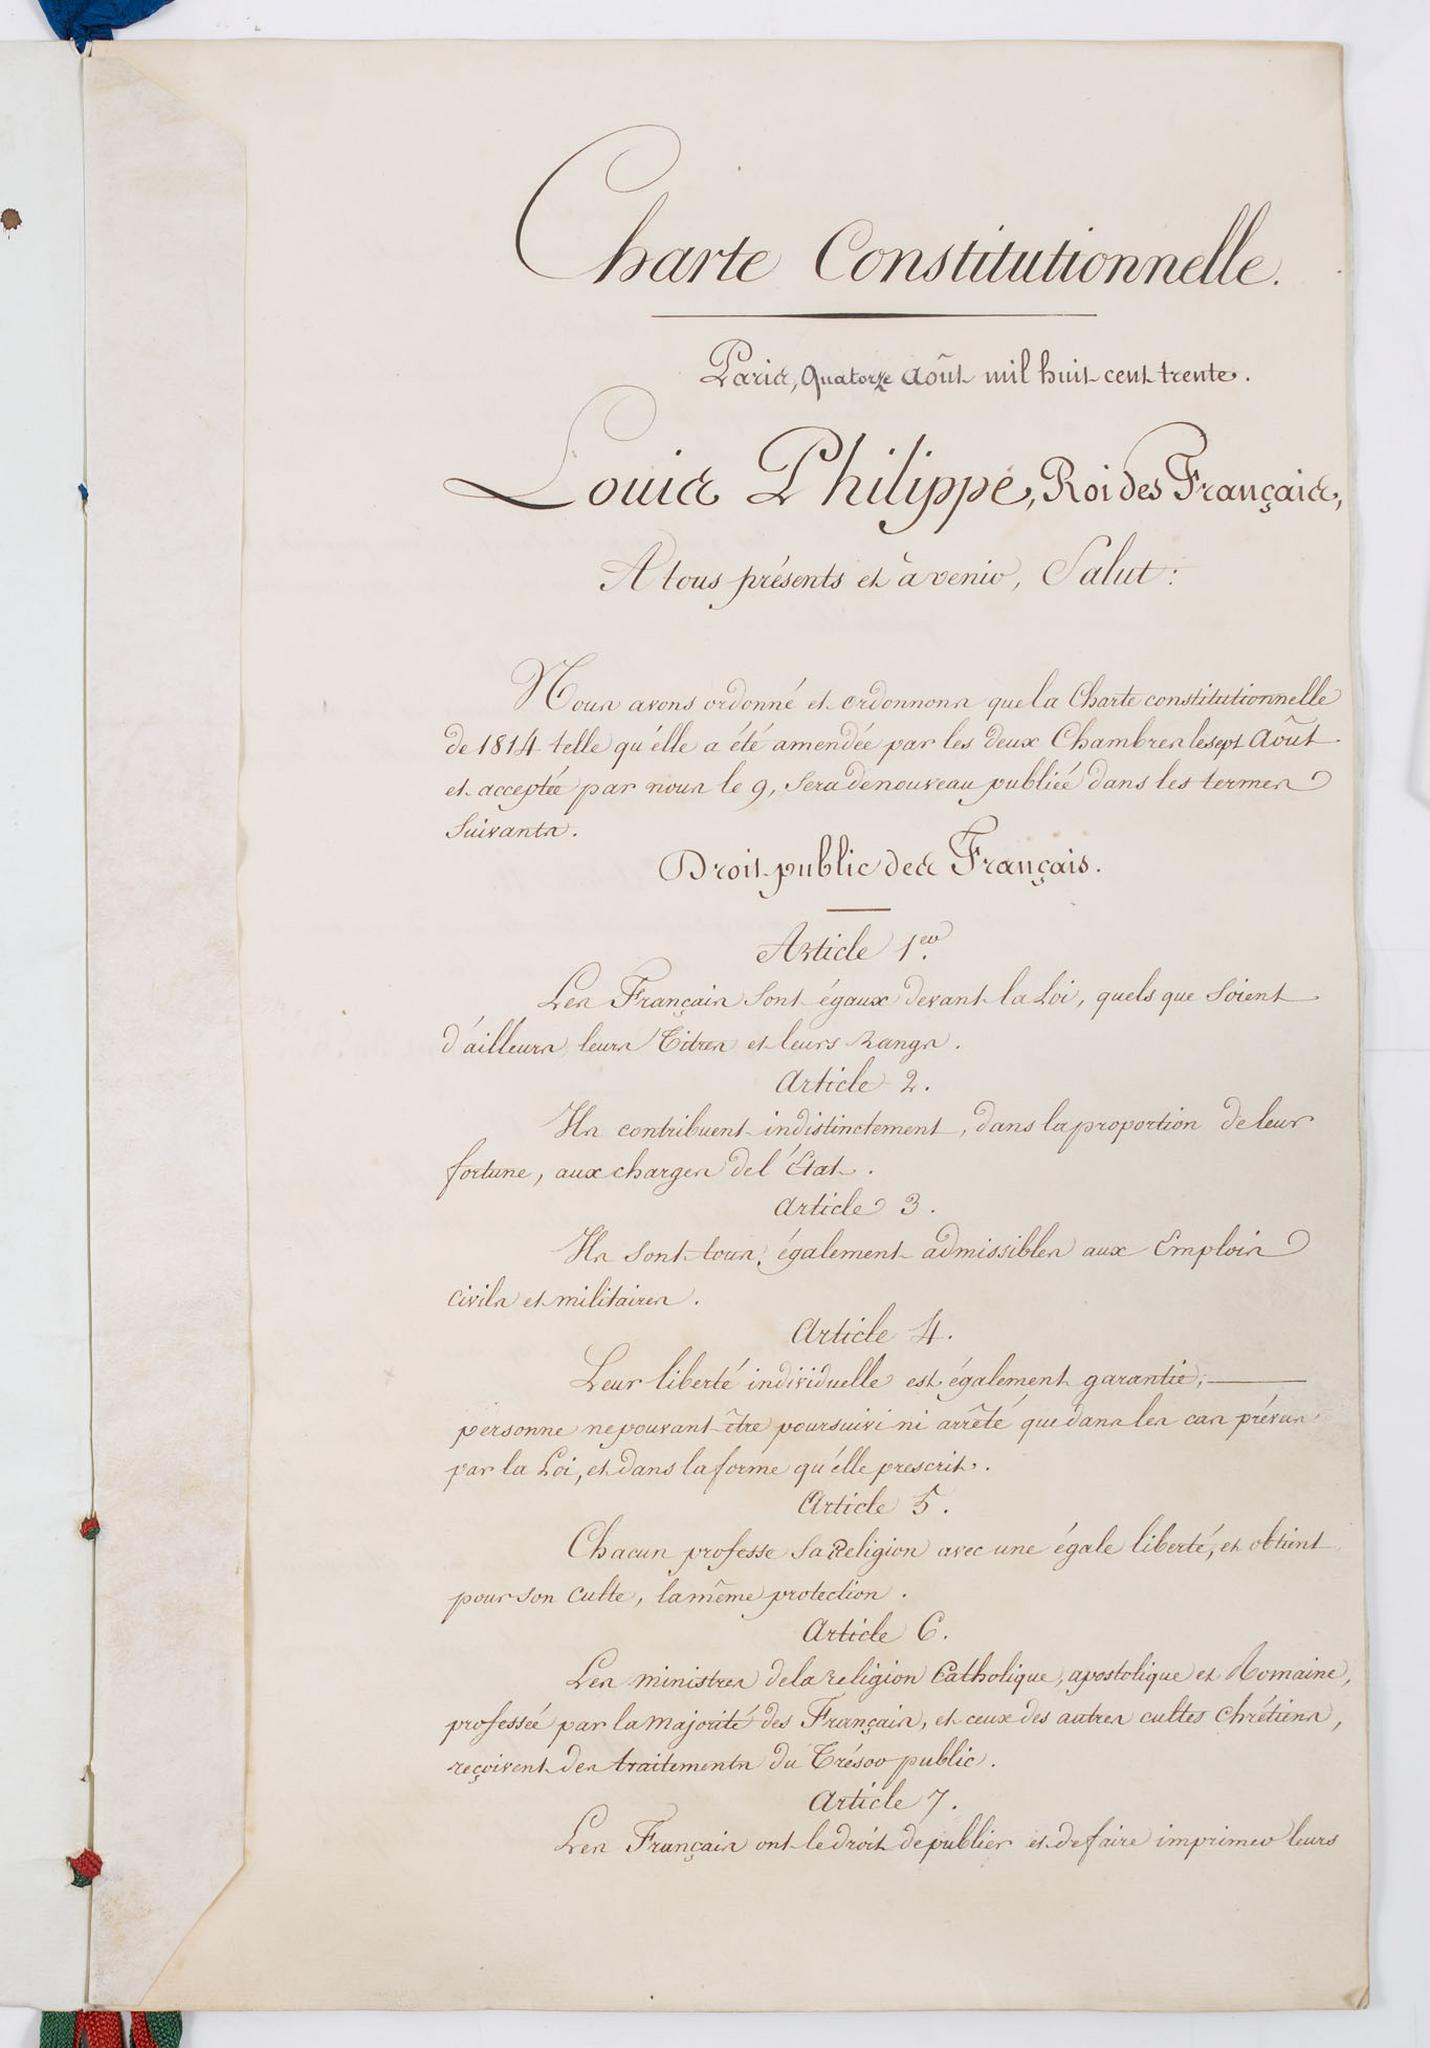 Charte Constitutionnelle.
Paris, Quatorze Août mil huit cent trente.
Louis Philippe, Roi des Français,
A tous présents et à venir, Salut :
Nous avons ordonné et ordonnons que la Charte constitutionnelle
de 1814 telle qu'elle a été amendée par les deux Chambres le sept Août
et acceptée par nous le 9, sera de nouveau publiée dans les termes
suivants.
Droit public des Français.
Article 1er.
Les Français sont égaux devant la Loi, quels que soient
d'ailleurs leurs Titres et leurs Rangs.
Article 2.
Ils contribuent indistinctement, dans la proportion de leur
fortune, aux charges de l'État.
Article 3.
Ils sont tous également admissibles aux Emplois
civils et militaires.
Article 4.
Leur liberté individuelle est également garantie,
personne ne pouvant être poursuivi ni arrêté que dans les cas prévus
par la Loi, et dans la forme qu'elle prescrit.
Article 5.
Chacun professe sa Religion avec une égale liberté, et obtient
pour son culte, la même protection.
Article 6.
Les ministres de la religion Catholique, apostolique et Romaine,
professée par la majorité des Français, et ceux des autres cultes chrétiens,
reçoivent des traitements du Trésor public.
Article 7.
Les Français ont le droit de publier et de faire imprimer leurs